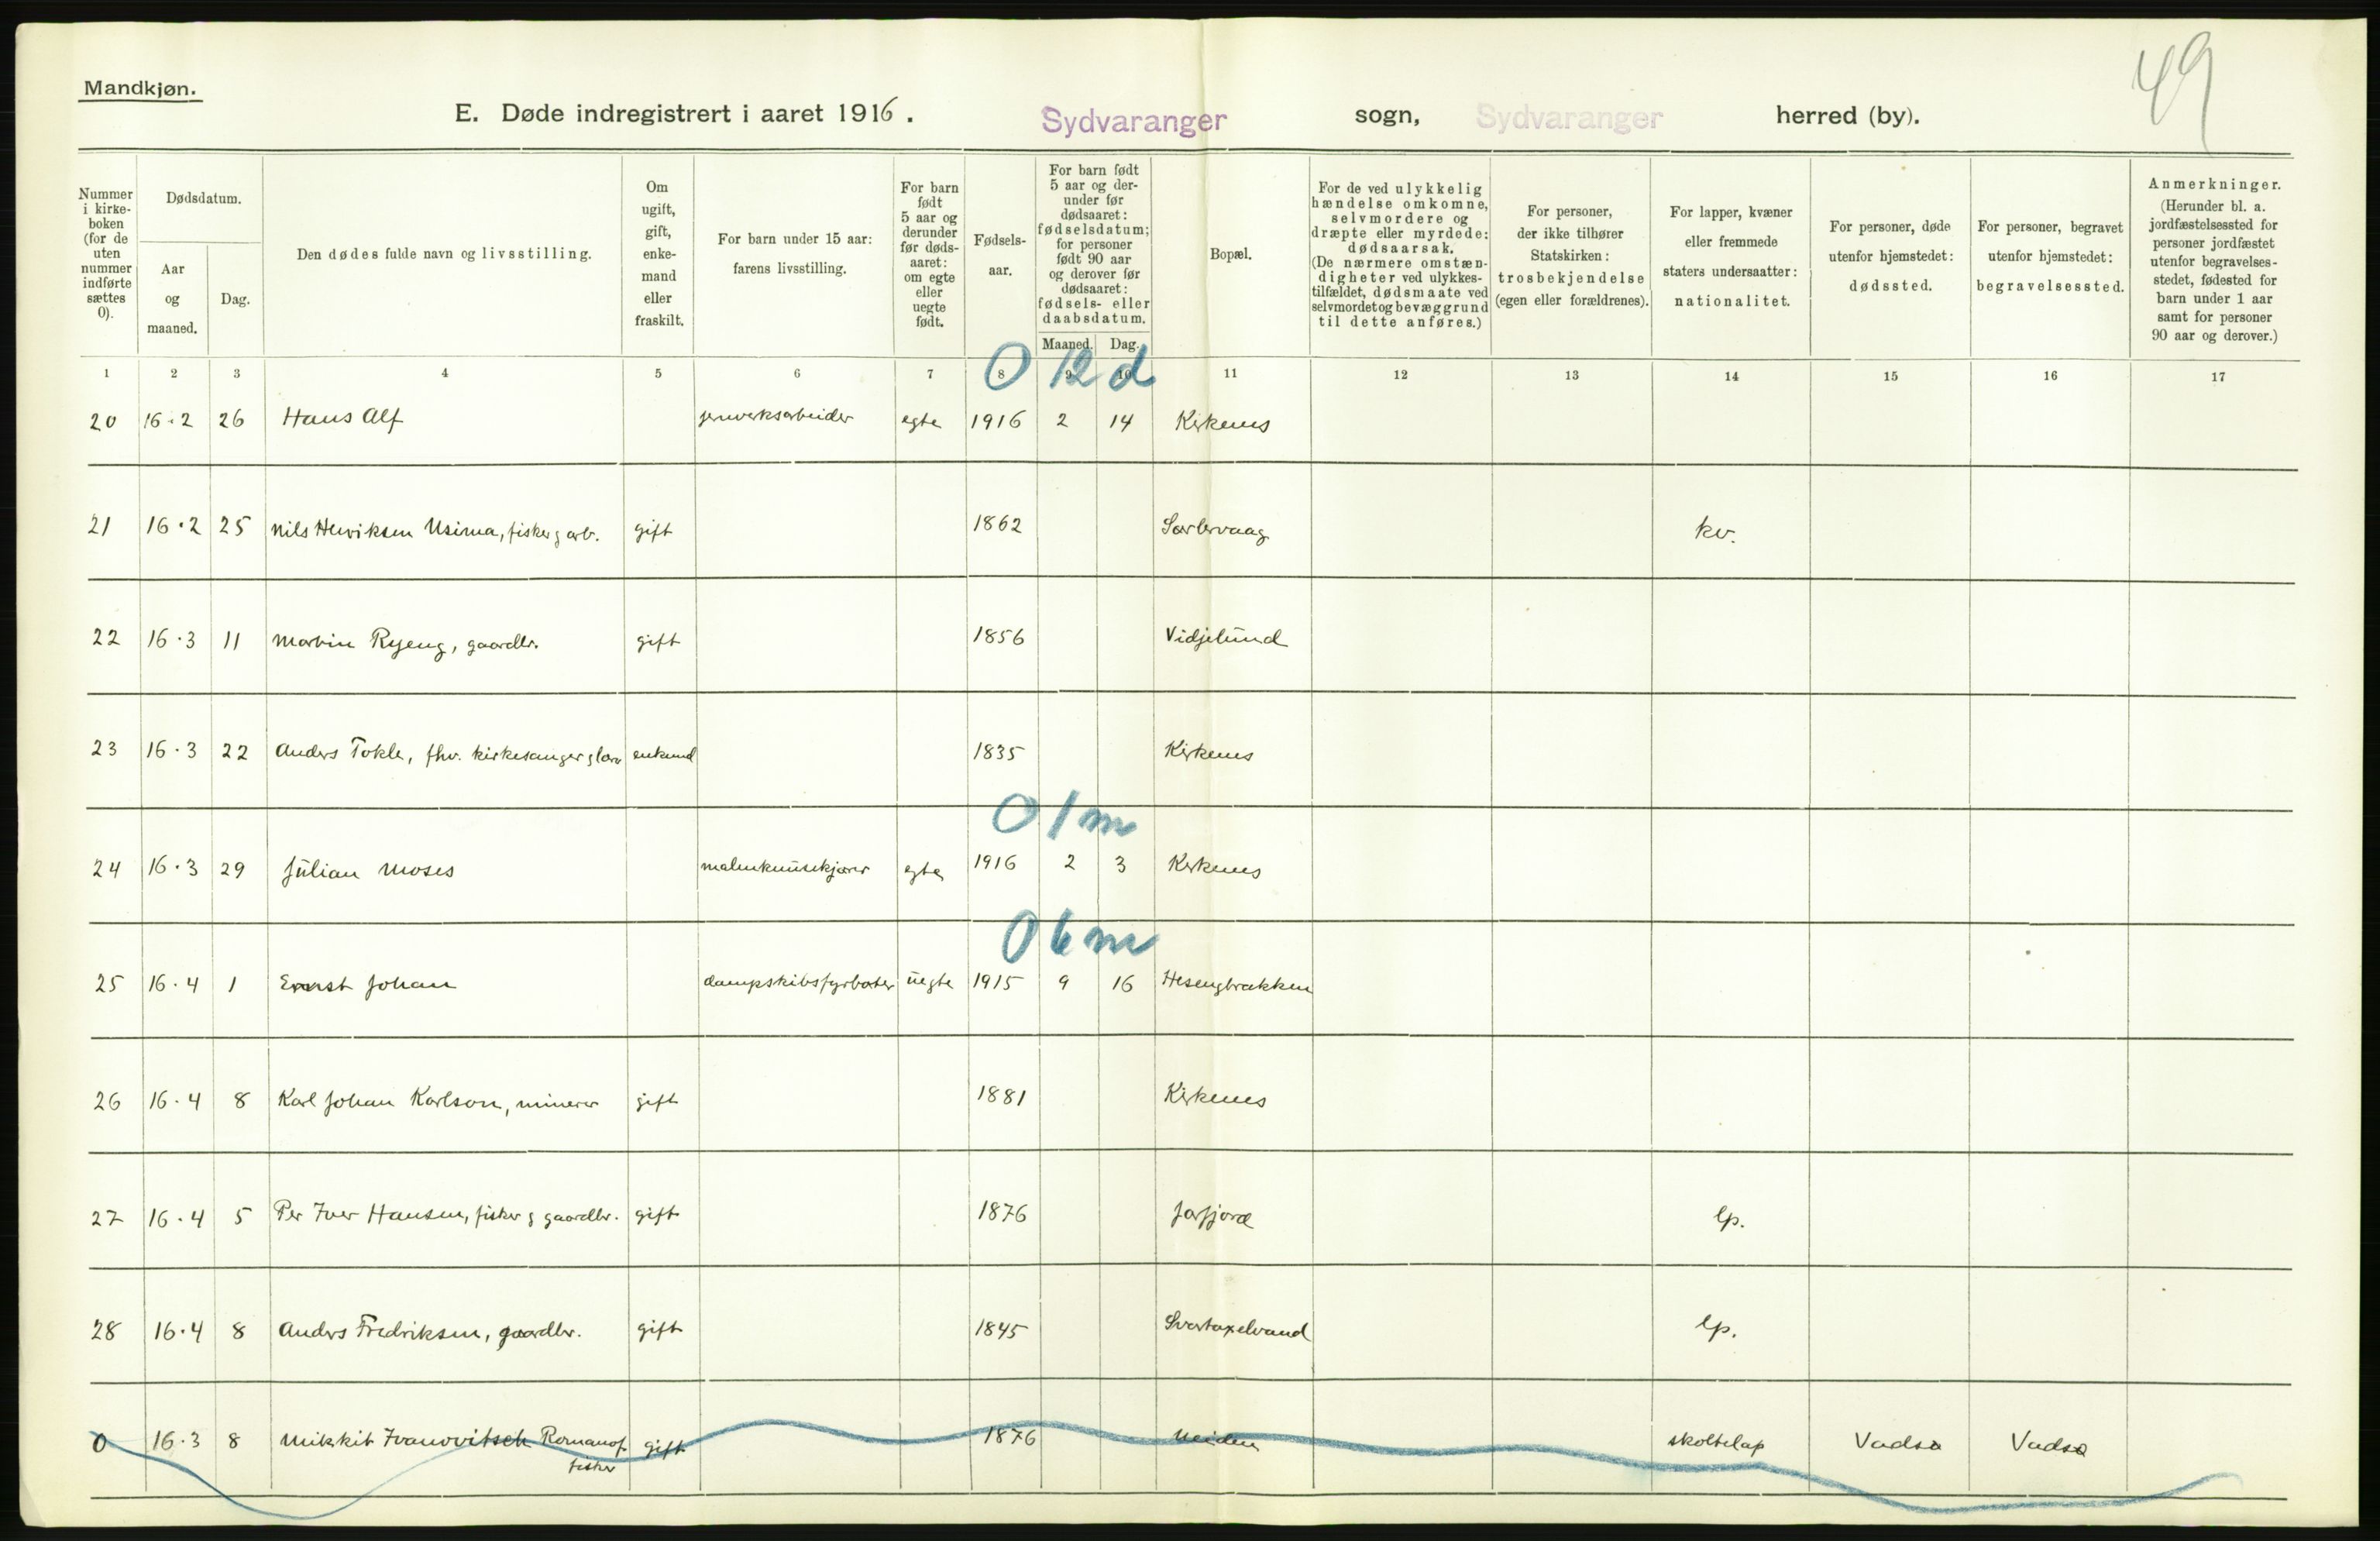 Mandkjøn.
49
E. Døde indregistrert i aaret 1916. Sydvaranger sogn, Sydvaranger herred (by).
Nummer i kirke-boken (for de uten nummer indførte sættes 0).
Dødsdatum.
Aar og maaned.
Dag.
Den dødes fulde navn og livsstilling.
Om ugift, gift, enke-mand eller fraskilt.
For barn under 15 aar: farens livsstilling.
For barn født 5 aar og derunder før døds-aaret: om egte eller uegte født.
Fødsels-aar.
For barn født 5 aar og der-under før dødsaaret: fødselsdatum; for personer født 90 aar og derover før dødsaaret: fødsels- eller daabsdatum.
Maaned. Dag.
Bopæl.
For de ved ulykkelig hændelse omkomne, selvmordere og dræpte eller myrdede: dødsaarsak. (De nærmere omstæn-digheter ved ulykkes-tilfældet, dødsmaate ved selvmordet og bevæggrund til dette anføres.)
For personer, der ikke tilhører Statskirken: trosbekjendelse (egen eller forældrenes).
For lapper, kvæner eller fremmede staters undersaatter: nationalitet.
For personer, døde utenfor hjemstedet: dødssted.
For personer, begravet utenfor hjemstedet: begravelsessted.
Anmerkninger. (Herunder bl. a. jordfæstelsessted for personer jordfæstet utenfor begravelses-stedet, fødested for barn under 1 aar samt for personer 90 aar og derover.)
1 2 3 4 5 6 7 8 9 10 11 12 13 14 15 16 17
0 12 d
20 16·2 26 Hans Alf jernverksarbeider egte 1916 2 14 Kirkenes
21 16·2 25 Nils Henriksen Usima, fisker g arb. gift 1862 kv.
22 16·3 11 Martin Ryeng, gaardbr. gift 1856 Vidjelund
23 16·3 22 Anders Tokle, fhv. kirkesanger g lær enkemd 1835 Kirkenes
0 1 m
24 16·3 29 Julian Moses malmknusekjører egte 1916 2 3 Kirkenes
0 6 m
25 16·4 1 Ernst Johan dampskibsfyrbøter uegte 1915 9 16 Hesengbrakken
26 16·4 8 Karl Johan Karlson, minerer gift 1881 Kirkenes
27 16·4 5 Per Iver Hansen, fisker g gaardbr. gift 1876 Jarfjord lp.
28 16·4 8 Anders Fredriksen, gaardbr. gift 1845 lp.
0 16·3 8 Mikkit Ivanovitsch Romanof gift 1876 Neiden skoltelap Vadsø Vadsø
fisker